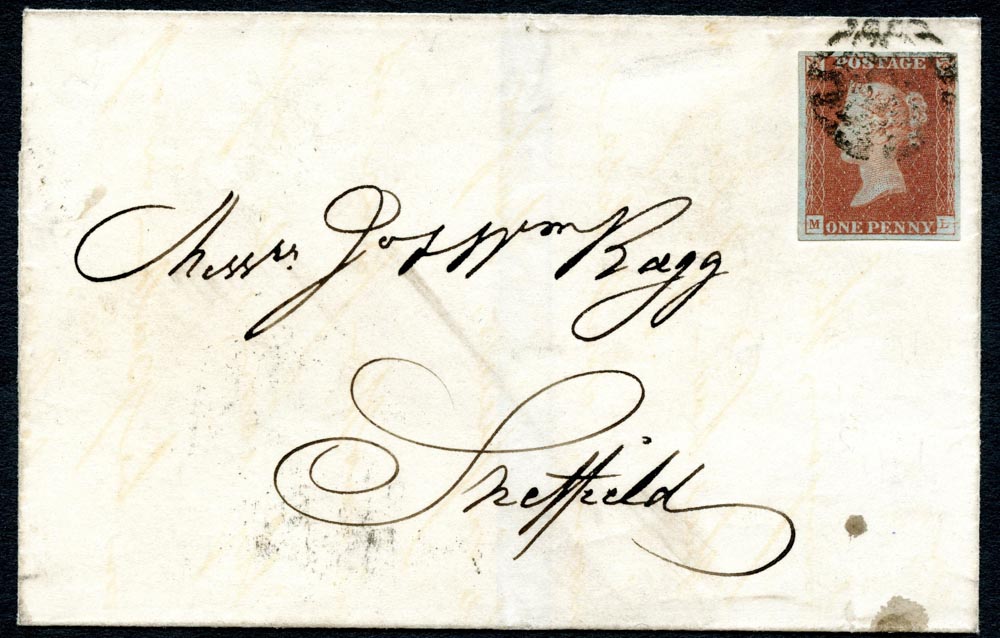 POSTAGE
M L
ONE PENNY
Messrs. Jos. & Wm Ragg
Sheffield